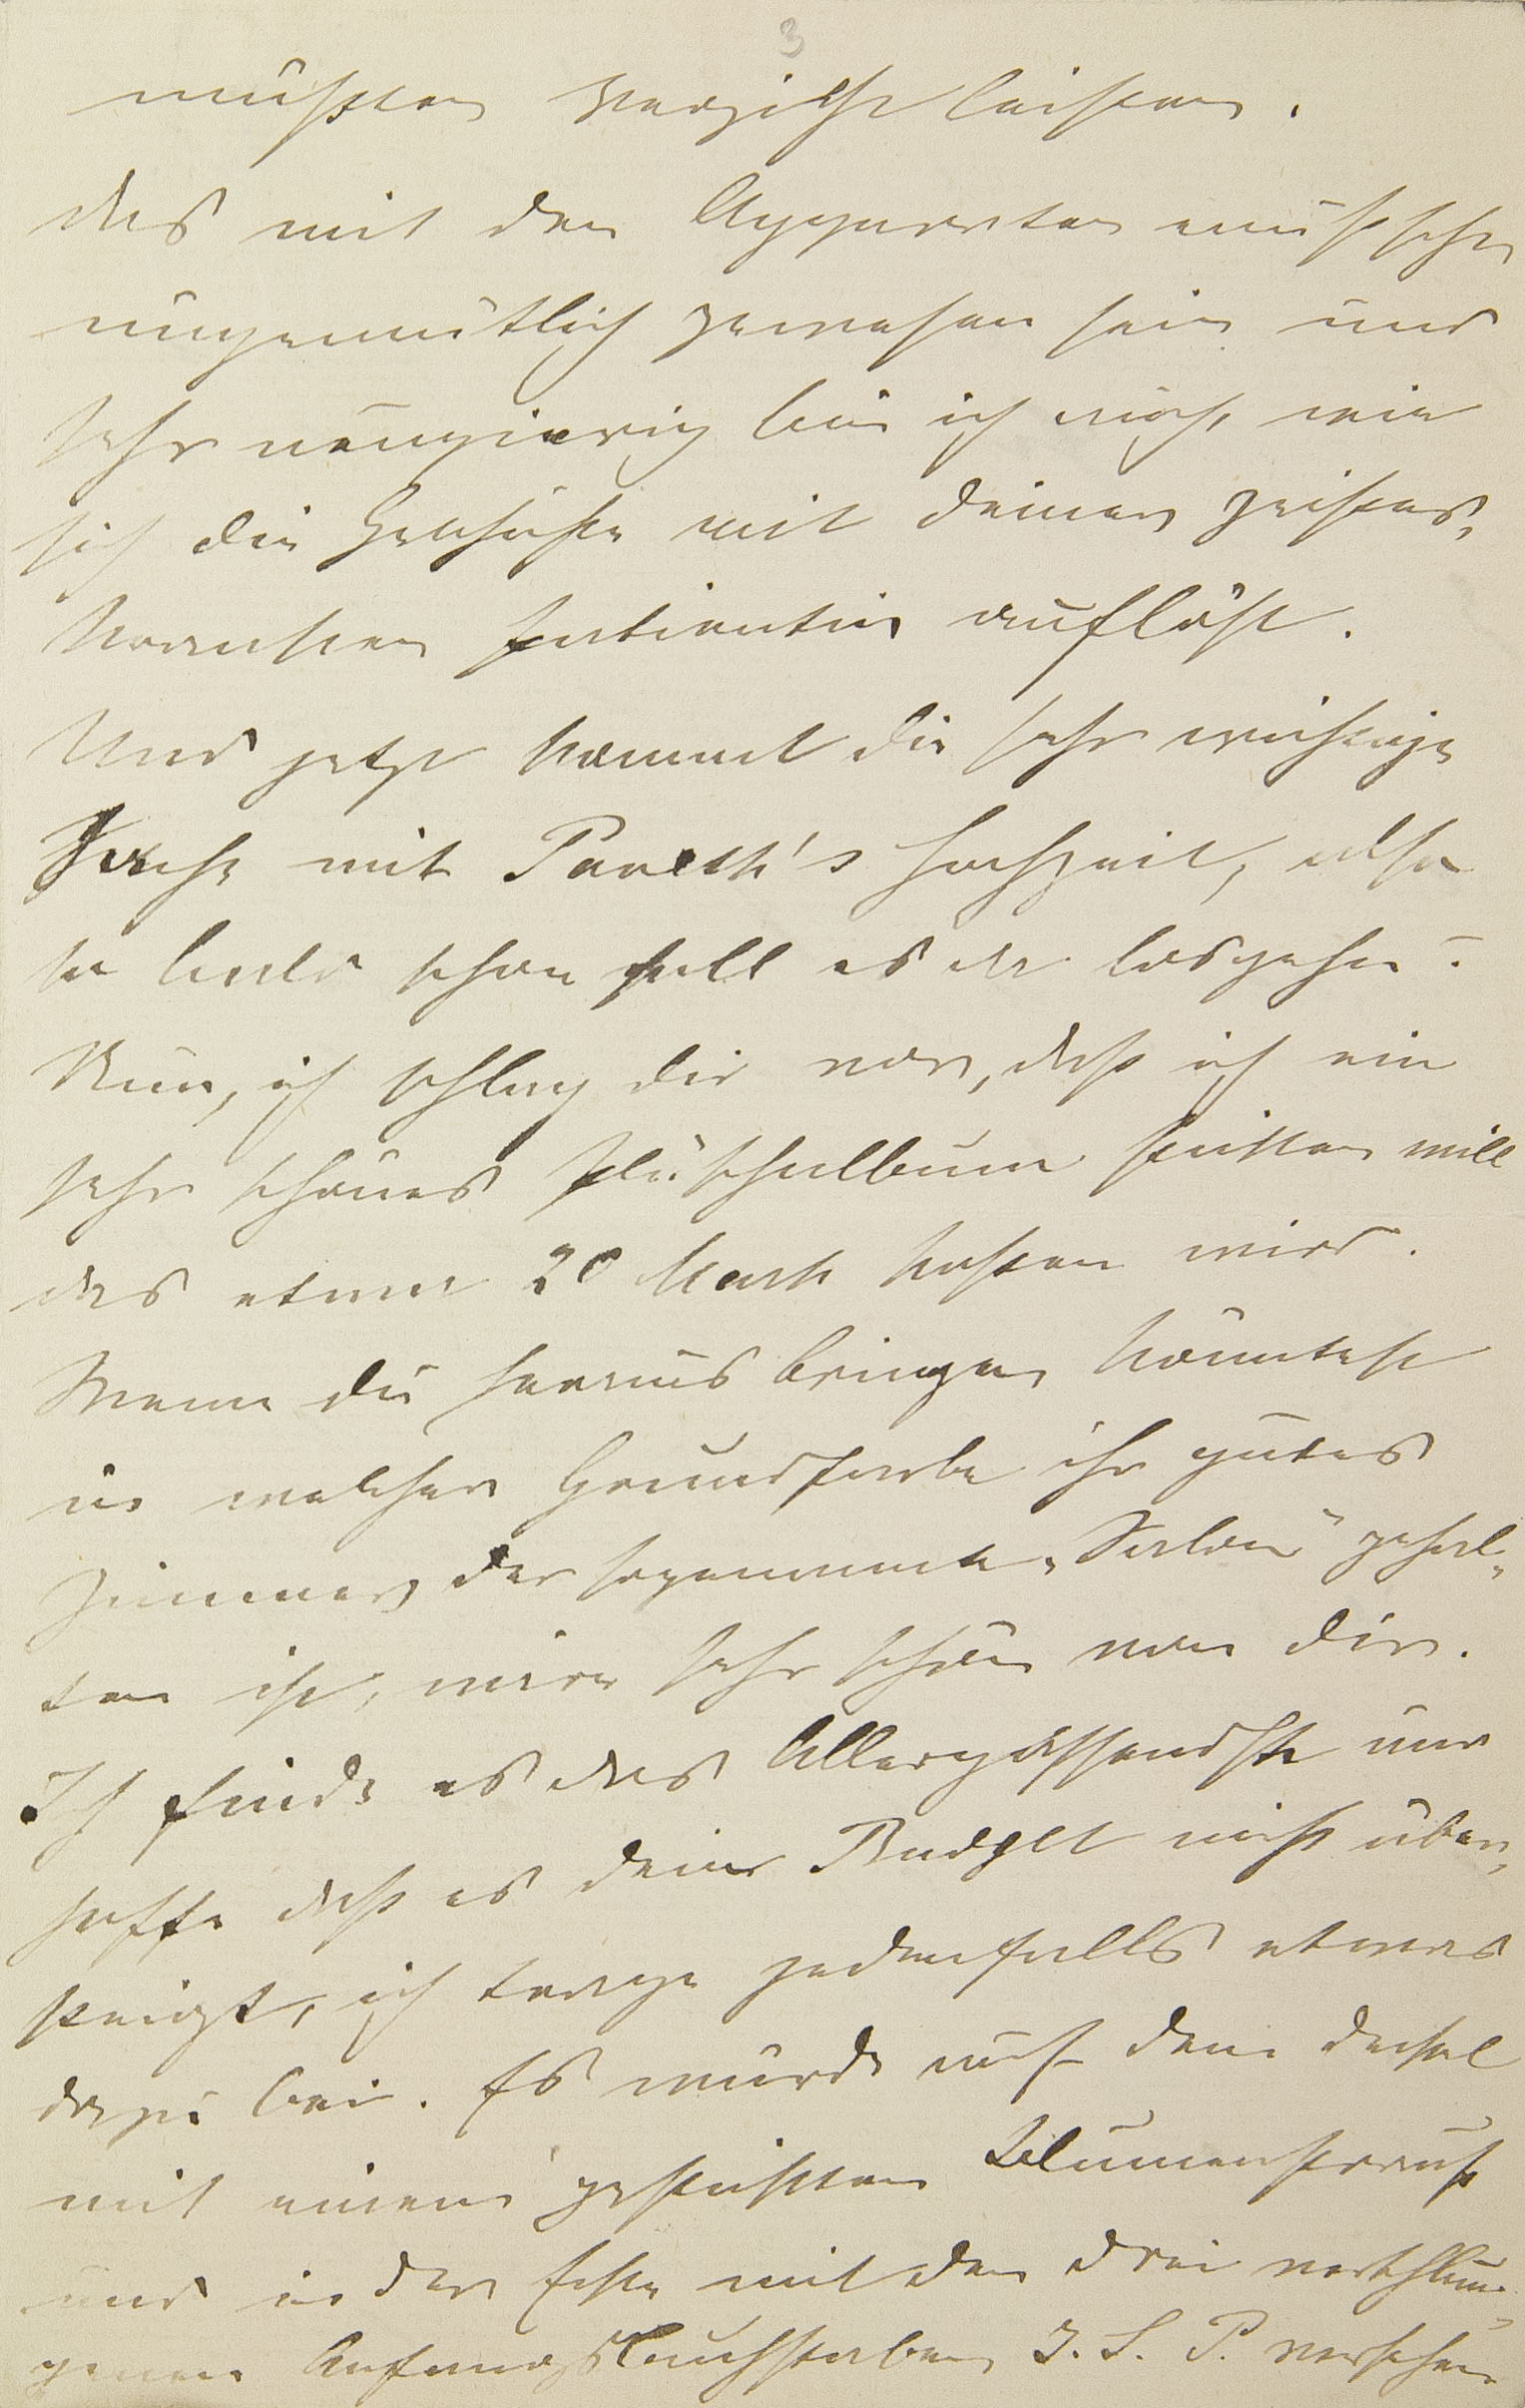 3
mußten Verzicht leisten.
das mit den Apparaten muß sehr
ungemütlich gewesen sein und
sehr neugierig bin ich auch, wie
sich die Geschichte mit deiner geistes„
kranken Patientin auflöst.
Und jetzt kommt die sehr wichtige
Sache mit Paneth's Hochzeit, also
so bald schon soll es da losgehen?
Nun, ich schlag dir vor, daß ich ein
sehr schönes Plüschalbum sticken will
das etwa 20 Mark kosten wird.
Wenn du heraus bringen könntest
in welcher Grundfarbe ihr gutes
Zimmer der sogenannte „Salon" gehal„
ten ist, wär sehr schön von dir.
Ich finde es das Allerpassendste und
hoffe daß es dein Budget nicht über„
steigt, ich trage jedenfalls etwas
dazu bei. Es würde auf dem Deckel
mit einem gestickten Blumenstrauß
und in der Ecke mit den drei verschlun„
genen Anfangsbuchstaben J. S. P. versehen